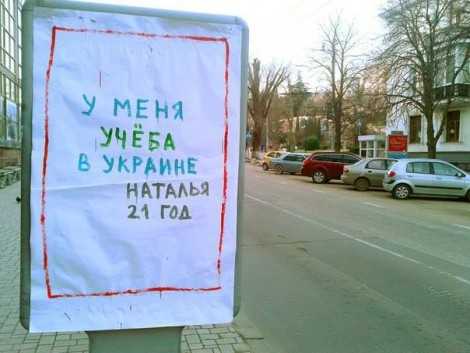 У МЕНЯ
УЧЁБА
В УКРАИНЕ
НАТАЛЬЯ
21 ГОД